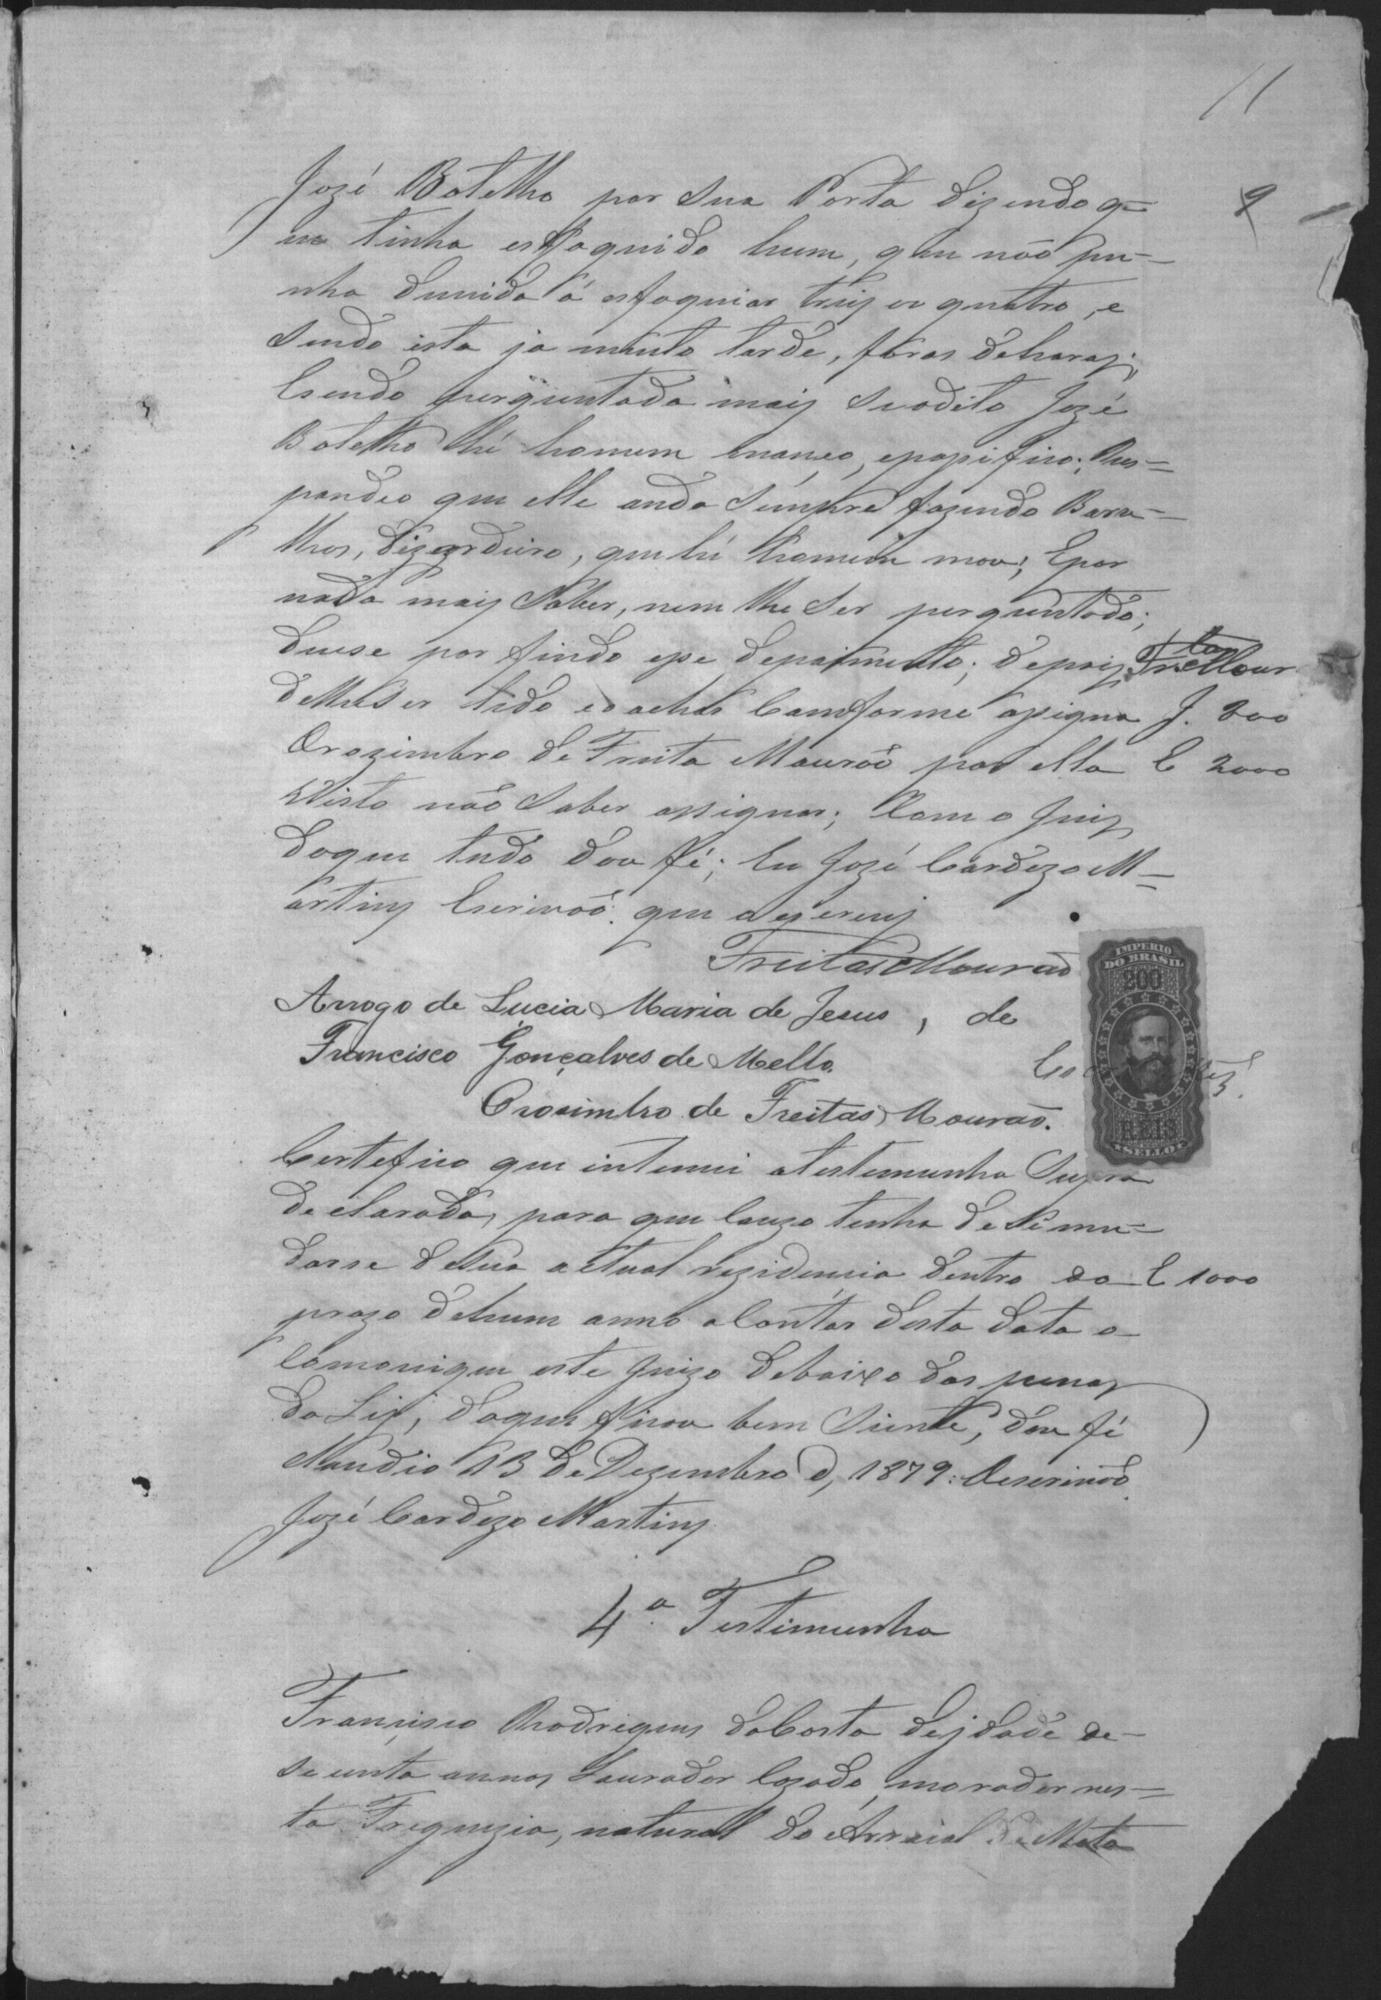 11
9
José Botelho por sua Porta dizendo q-
ue tinha esfaquido hum, que não pu-
nha duvida á esfaquiar treis ou quatro, e
sendo ista ja muito tarde, foras dehoras;
Esendo perguntada mais seodito José
Botelho hé homem manço, epasifico; Res-
pondeo que elle anda sempre fazendo Baru-
lhos, dizordeiro, quehé homem mao; Epor
nada mais saber, nem lhe ser perguntado;
deuse por findo ese depaimento; depois
deser lido eoachar Comforme asigna J. 200
Orozimbro de Freita Mourão por ella E 2000
visto não saber asignar; Com o Juis
doque tudo dou fé; Eu José Cardozo M-
artins Escrivão que o escrevi
Freitas Mourão
Arrogo de Lucia Maria de Jesus, de
Francisco Gonçalves de Mello.
Orosimbro de Freitas Mourão.
IMPERIO
DO BRASIL
200
REIS
SELLO
Certefico que intemei atestemunha Supra
declarada, para que Cauzo tenha de se mu-
darse desua actual rezidencia dentro do E 1000
prazo dehum anno aContar desta data o
Comonique este Juizo debaixo das penas
da Lei, doque ficou bem siente, dou fé
13 de Dezembro d, 1879: Oescrivão
José Cardozo Martins
4ª Testimunha
Francisco Rodrigues daCosta deidade de
secenta annos Laurador Cazado, morador nes-
ta Freguezia, natural do Arraial de Mata